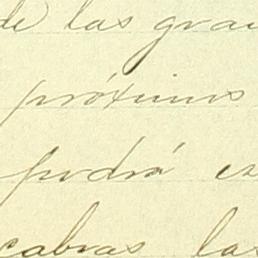 de las gran
próximos
podrá es
cabras las